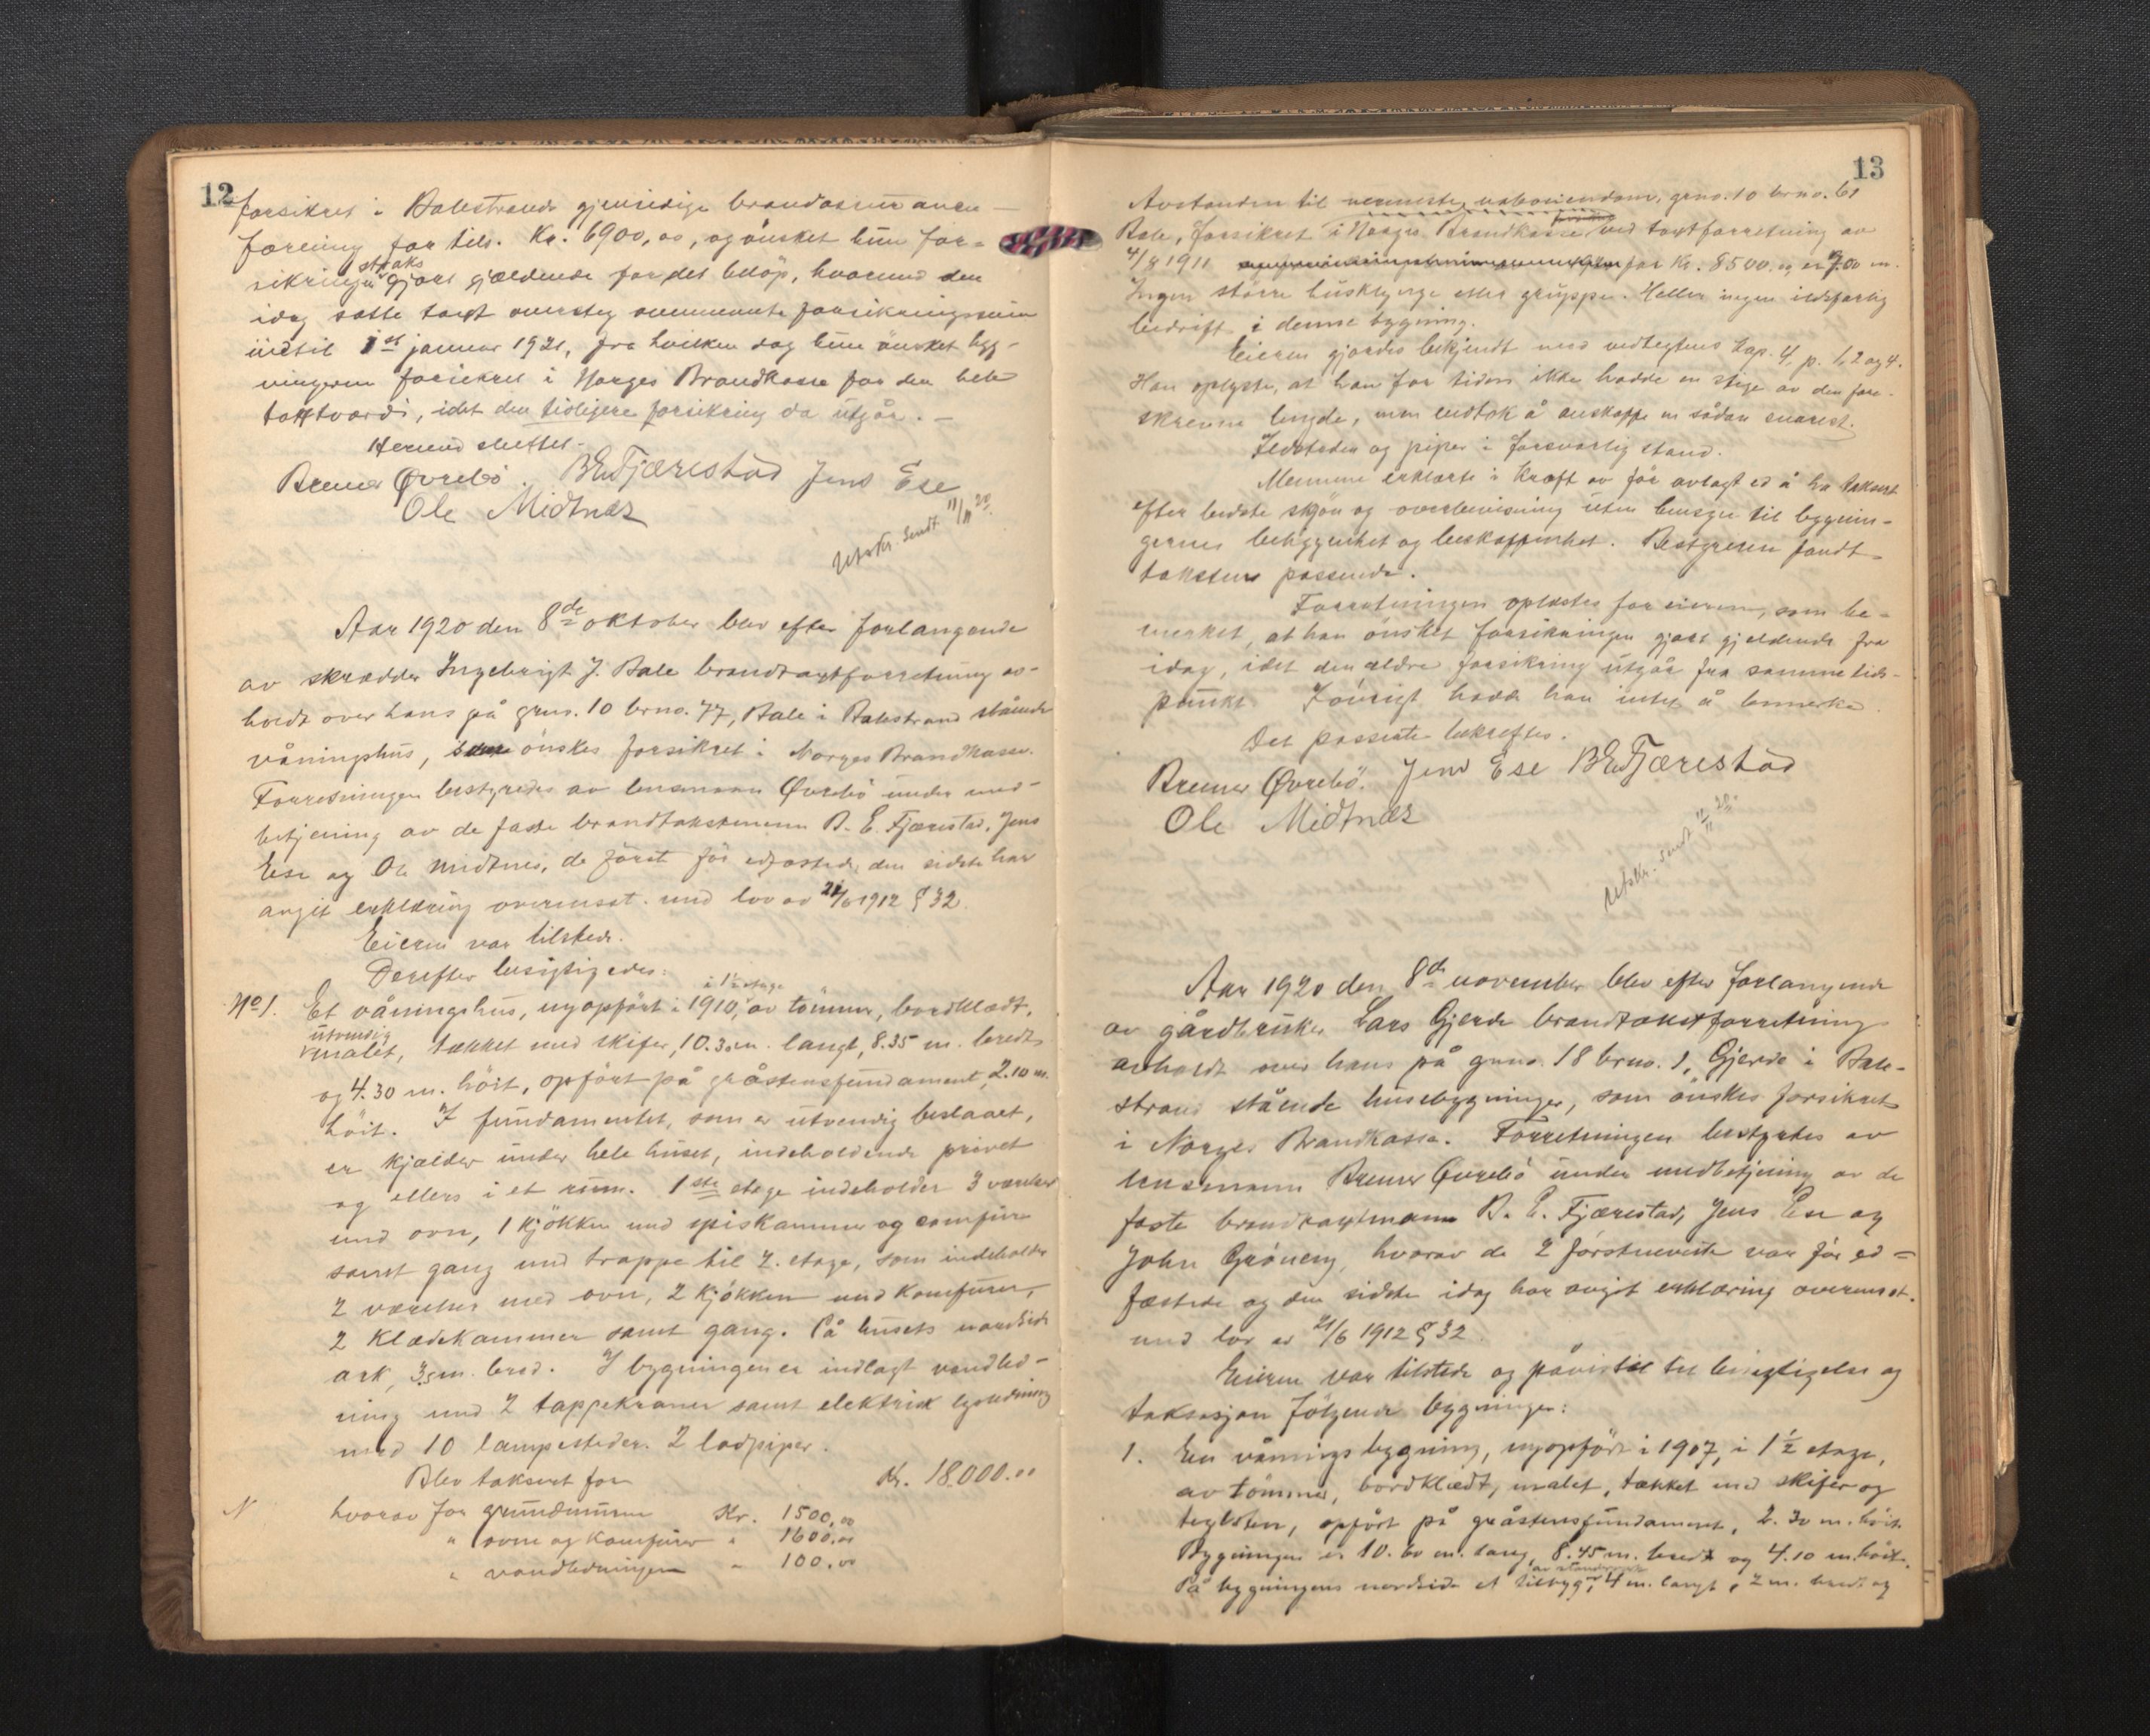 12
forsikret i Balestrands gjensidige brandassuranse-
forening for tils. Kr. 6900,00, og ønsket hun for-
sikringen straks gjort gjældende for det beløp, hvormed den
idag satte takst oversteg ovennævnte forsikringssum
indtil 1st januar 1921, fra hvilken dag hun ønsket byg-
ningerne forsikret i Norges Brandkasse for den hele
takstværdi, idet den tidligere forsikring da utgår. -
Hermed sluttet.
Bremer Øvrebö. B E Fjærestad Jens Ese
Ole Midtnes
Utskr. sendt 11/11 20.
Aar 1920 den 8de oktober blev efter forlangende
av skrædder Ingebrigt J. Bale brandtaxtforretning av-
holdt over hans på grno. 10 brno. 77, Bale i Balestrand stående
våningshus, som ønskes forsikret i Norges Brandkasse.
Forretningen bestyredes av lensmann Øvrebö under med-
betjening av de faste brandtakstmenn B. E. Fjærestad, Jens
Ese og Ole Midtnes, de først før edfæstede, den sidste har
avgit erklæring overensst. med lov av 21/6 1912 § 32.
Eieren var tilstede.
Derefter besigtigedes:
No 1. Et våningshus, nyopført i 1910, i 1½ etage av tömmer, bordklædt,
utvendig malet, tækket med skifer, 10.30 m. langt, 8.35 m. bredt
og 4.30 m. höit, opfört på gråstensfundament, 2.10 m.
höit. I fundamentet, som er utvendig beslaaet,
er kjælder under hele huset, indeholdende privet
og ellers i et rum. 1ste etage indeholder 3 værelser
med ovn, 1 kjökken med spiskammer og comfur
samt gang med trappe til 2. etage, som indeholder
2 værelser med ovn, 2 kjökken med komfurer,
2 klædekammer samt gang. På husets nordside
ark, 3.5 m. bred. I bygningen er indlagt vandled-
ning med 2 tappekraner samt elektrisk lysledning
med 10 lampesteder. 2 lodpiper.
Blev taksert for Kr. 18.000.00
N hvorav for grundmuren Kr. 1500,00
" ovne og komfurer " 1600.00
" vandledningen " 100.00
13
Avstanden til nærmeste naboeiendom, grno. 10 brno. 61
Bale, forsikret i Norges Brandkasse ved taxtforretning av
4/8 1911 for Kr. 8500.00 er 7.00 m.
Ingen större husklynge eller gruppe. Heller ingen ildsfarlig
bedrift i denne bygning.
Eieren gjordes bekjendt med vedtegtens kap. 4, p. 1, 2 og 4.
Han oplyste, at han for tiden ikke hadde en stige av den fore-
skrevne lengde, men lovtok å anskaffe en sådan snarest.
Ildsteder og piper i forsvarlig stand.
Mennene erklærte i kraft av før avlagt ed å ha taksert
efter bedste skjön og overbevisning uten hensyn til bygnin-
gernes behyggenhet og beskaffenhet. Bestyreren fandt
taksten passende.
Forretningen oplæstes for eieren, som be-
merket, at han önsket forsikringen gjort gjeldende fra
idag, idet den ældre forsikring utgår fra samme tids-
punkt. Forøvrigt hadde han intet å bemerke.
Det passerte bekreftes.
Bremer Øvrebö. Jens Ese B E Fjærestad
Ole Midtnes
Utskr. sendt 12/11 20.
Aar 1920 den 8de november blev efter forlangende
av gårdbruker Lars Gjerde brandtakstforretning
avholdt over hans på grno. 18 brno. 1, Gjerde i Bale-
strand stående husebygninger, som önskes forsikret
i Norges Brandkasse. Forretningen bestyrtes av
lensmann Bremer Øvrebö under medbetjening av de
faste brandtaxtmenn B. E. Fjærestad, Jens Ese og
John Gröneng, hvorav de 2 förstnevnte var før ed-
fæstede og den sidste idag har avgit erklæring overensst.
med lov av 21/6 1912 § 32.
Eieren var tilstede og påviste til besigtigelse og
taksasjon fölgende bygninger:
1. En våningsbygning, nyopfört i 1907, i 1½ etage,
av tömmer, bordklædt, malet, tækket med skifer og
teglsten, opført på gråstensfundament, 2.30 m. höit.
Bygningen er 10.60 m. lang, 8.45 m. bredt og 4.10 m. höit.
På bygningens nordside et tilbyg, 4 m. langt, 2 m. bredt og